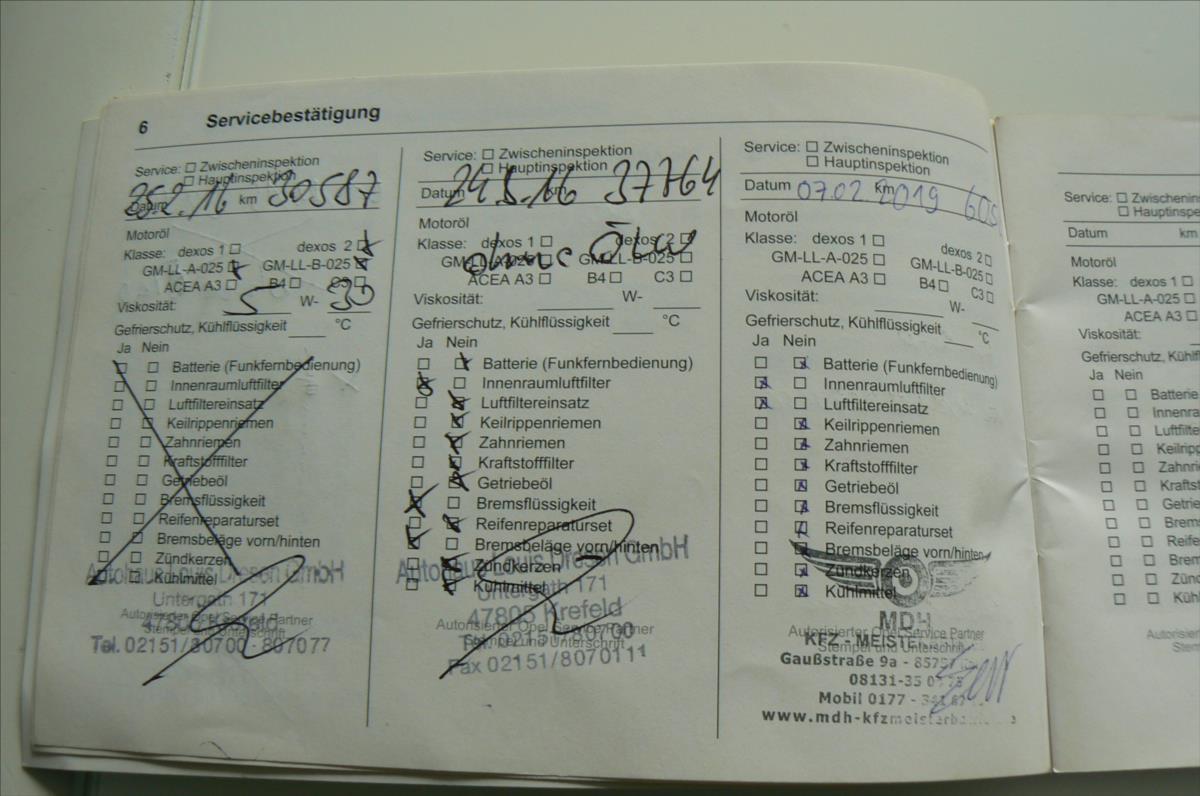 6 Servicebestätigung
Service: ☐ Zwischeninspektion
☐ Hauptinspektion
Datum 25.2.16 km 30587
Motoröl
Klasse: dexos 1 ☐ dexos 2 ☒
GM-LL-A-025 ☒ GM-LL-B-025 ☒
ACEA A3 ☐ B4 ☐ C3 ☐
Viskosität: 5 W- 30
Gefrierschutz, Kühlflüssigkeit ____ °C
Ja Nein
☐ ☐ Batterie (Funkfernbedienung)
☐ ☐ Innenraumluftfilter
☐ ☐ Luftfiltereinsatz
☐ ☐ Keilrippenriemen
☐ ☐ Zahnriemen
☐ ☐ Kraftstofffilter
☐ ☐ Getriebeöl
☐ ☐ Bremsflüssigkeit
☐ ☐ Reifenreparaturset
☐ ☐ Bremsbeläge vorn/hinten
☐ ☐ Zündkerzen
☐ ☐ Kühlmittel
Autohaus Louis Dresen GmbH
Untergath 171
47805 Krefeld
Autorisierter Opel Service Partner
Stempel und Unterschrift
Tel. 02151/80700 - 807077
Service: ☐ Zwischeninspektion
☐ Hauptinspektion
Datum 24.5.16 km 37764
Motoröl
Klasse: dexos 1 ☐ dexos 2 ☐
ohne Ölw
GM-LL-A-025 ☐ GM-LL-B-025 ☐
ACEA A3 ☐ B4 ☐ C3 ☐
Viskosität: ____ W- ____
Gefrierschutz, Kühlflüssigkeit ____ °C
Ja Nein
☐ ☒ Batterie (Funkfernbedienung)
☒ ☐ Innenraumluftfilter
☐ ☒ Luftfiltereinsatz
☐ ☒ Keilrippenriemen
☐ ☒ Zahnriemen
☐ ☒ Kraftstofffilter
☐ ☒ Getriebeöl
☒ ☐ Bremsflüssigkeit
☐ ☒ Reifenreparaturset
☒ ☐ Bremsbeläge vorn/hinten
☐ ☒ Zündkerzen
☐ ☒ Kühlmittel
Autohaus Louis Dresen GmbH
Untergath 171
47805 Krefeld
Autorisierter Opel Service Partner
Tel. 02151/80700
Stempel und Unterschrift
Fax 02151/8070111
Service: ☐ Zwischeninspektion
☐ Hauptinspektion
Datum 07.02.2019 km
Motoröl
Klasse: dexos 1 ☐ dexos 2 ☐
GM-LL-A-025 ☐ GM-LL-B-025 ☐
ACEA A3 ☐ B4 ☐ C3 ☐
Viskosität: ____ W- ____
Gefrierschutz, Kühlflüssigkeit ____ °C
Ja Nein
☐ ☒ Batterie (Funkfernbedienung)
☒ ☐ Innenraumluftfilter
☒ ☐ Luftfiltereinsatz
☐ ☒ Keilrippenriemen
☐ ☒ Zahnriemen
☐ ☒ Kraftstofffilter
☐ ☒ Getriebeöl
☐ ☒ Bremsflüssigkeit
☐ ☒ Reifenreparaturset
☐ ☒ Bremsbeläge vorn/hinten
☐ ☒ Zündkerzen
☐ ☒ Kühlmittel
MDH
Autorisierter Opel Service Partner
KFZ - MEISTE
Stempel und Unterschrift
Gaußstraße 9a -
08131-35 0
Mobil 0177 -
www.mdh-kfzmeisterb
Service: ☐ Zwischenin
☐ Hauptinspe
Datum km
Motoröl
Klasse: dexos 1 ☐
GM-LL-A-025 ☐
ACEA A3 ☐
Viskosität:
Gefrierschutz, Kühlfl
Ja Nein
☐ ☐ Batterie
☐ ☐ Innenra
☐ ☐ Luftfilt
☐ ☐ Keilripp
☐ ☐ Zahnri
☐ ☐ Kraftst
☐ ☐ Getrie
☐ ☐ Brems
☐ ☐ Reife
☐ ☐ Brem
☐ ☐ Zünd
☐ ☐ Kühl
Autorisier
Stem